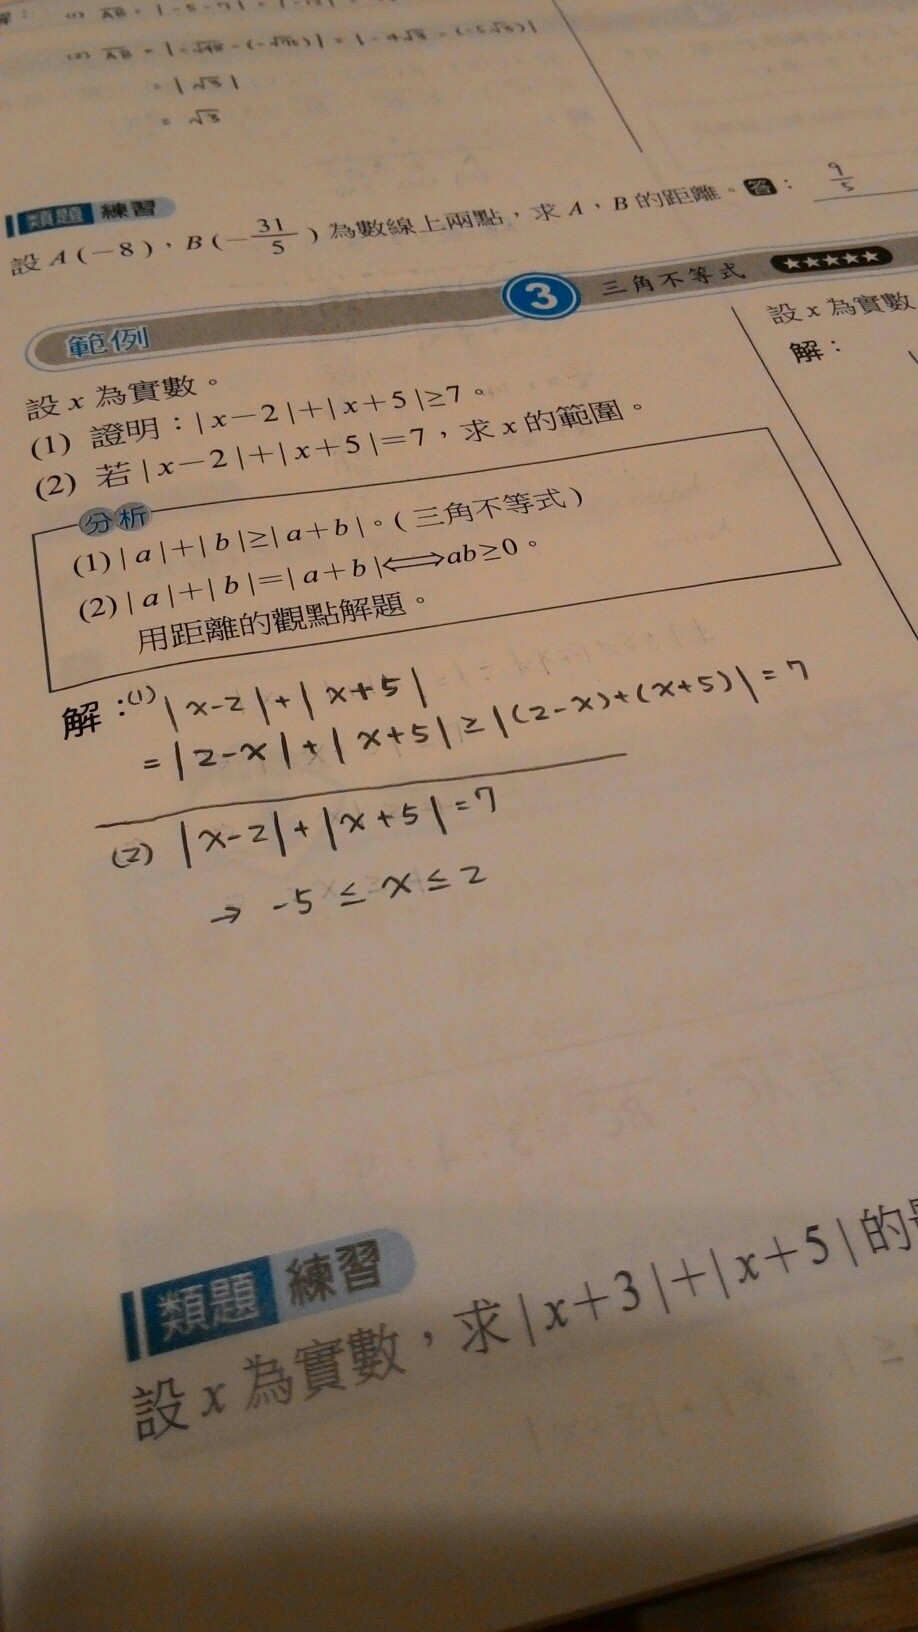 (2) AB = |-√48-(-√75)| = |-4√3-(-5√3)|
= |√3|
= √3
類題 練習
設 A(-8),B(-31/5)為數線上兩點,求 A,B 的距離。答: 9/5
範例 3 三角不等式 ★★★★★
設 x 為實數。
(1) 證明:|x-2|+|x+5|≥7。
(2) 若|x-2|+|x+5|=7,求 x 的範圍。
分析
(1)|a|+|b|≥|a+b|。(三角不等式)
(2)|a|+|b|=|a+b|⟺ab≥0。
用距離的觀點解題。
解:(1) |x-2|+|x+5|
=|2-x|+|x+5|≥|(2-x)+(x+5)|=7
(2) |x-2|+|x+5|=7
→ -5≤x≤2
類題 練習
設 x 為實數,求|x+3|+|x+5|的
設 x 為實數
解: